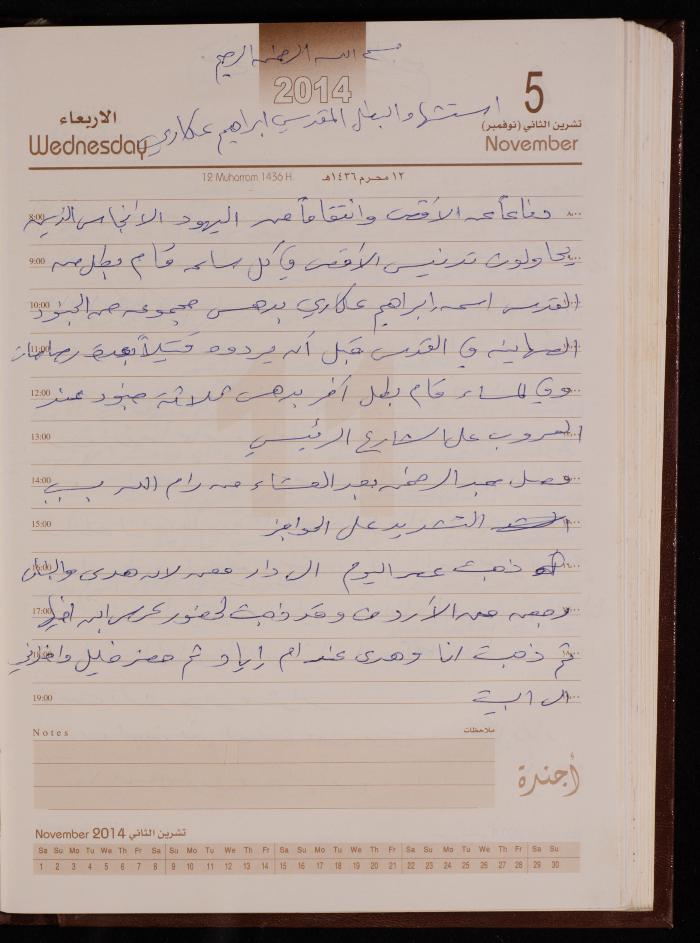 بسم الله الرحمن الرحيم
2014
5
الاربعاء
تشرين الثاني (نوفمبر)
استشهاد البطل المقدسي ابراهيم عكاري
Wednesday
November
12 Muharram 1436 H.
١٢ محرم ١٤٣٦هـ
8:00 دفاعاً عن الأقصى وانتقاماً من اليهود الانجاس الذين ٨:٠٠
9:00 يحاولون تدنيس الاقصى في كل ساعه قام بطل من
10:00 القدس اسمه ابراهيم عكاري بدهس مجموعه من الجنود
11:00 الصهاينه في القدس قبل أن يردوه قتيلاً بعدة رصاصات
12:00 وفي المساء قام بطل آخر بدهس ثلاثة جنود عند
13:00 العروب على الشارع الرئيسي
14:00 وصل عبد الرحمن بعد العشاء من رام الله بسبب
15:00 التشديد على الحواجز
16:00 ذهبت عصر اليوم الى دار لان هدى
17:00 من الأردن وقد ذهبت لحضور عرس ابن
ثم ذهبت انا وهدى عند ام اياد ثم حضر خليل
19:00 الى البيت
Notes
ملاحظات
أجندة
November 2014 تشرين الثاني
Sa Su Mo Tu We Th Fr Sa Su Mo Tu We Th Fr Sa Su Mo Tu We Th Fr Sa Su Mo Tu We Th Fr Sa Su
1 2 3 4 5 6 7 8 9 10 11 12 13 14 15 16 17 18 19 20 21 22 23 24 25 26 27 28 29 30